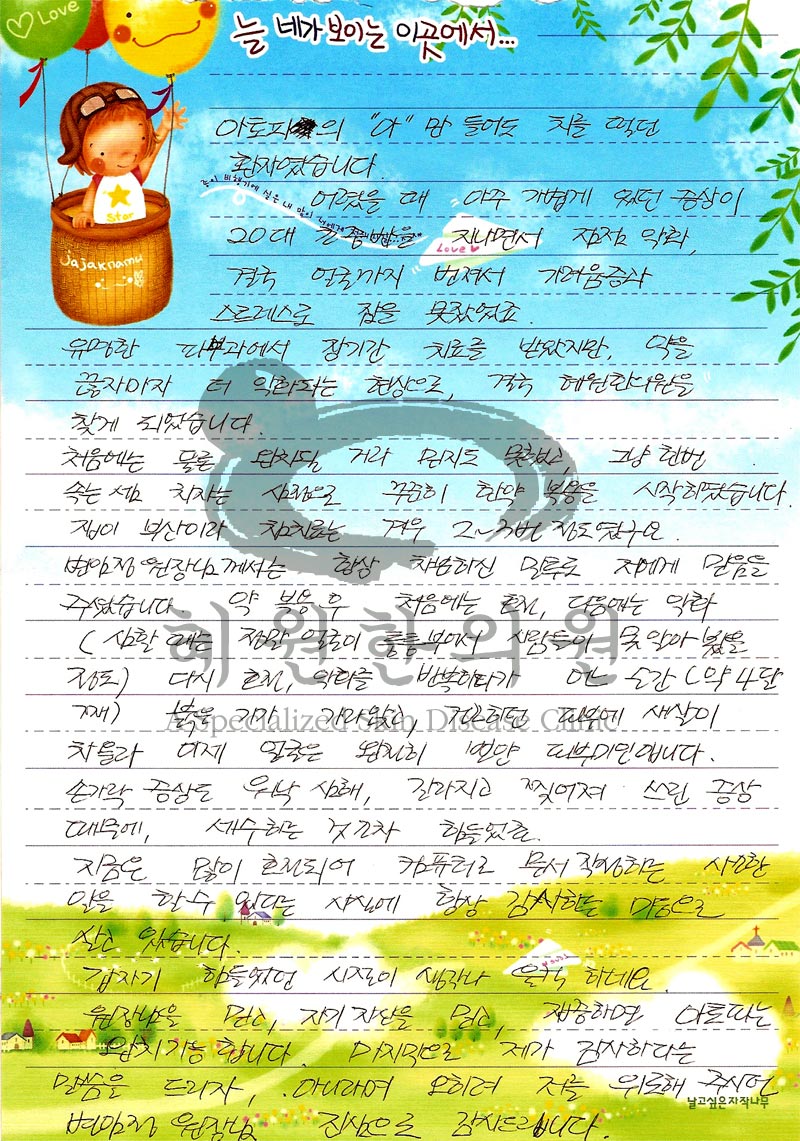 Love
늘 네가 보이는 이곳에서...
아토피의 "아" 만 들어도 치를 떨던
환자였습니다.
종이 비행기에 실은 내 맘이 너에게
어렸을 때 아주 가볍게 있던 증상이
Star
20대 을 지나면서 점점 악화,
Love
jajaknamu
결국 얼굴까지 번져서 가려움증과
스트레스로 잠을 못잤었죠.
유명한 피부과에서 장기간 치료를 받았지만, 약을
끊자마자 더 악화되는 현상으로, 결국 혜원한의원을
찾게 되었습니다.
처음에는 물론 완치될 거라 믿지도 못했고, 그냥 한번
속는 셈 치자는 심정으로 꾸준히 한약 복용을 시작하였습니다.
집이 부산이라 침치료는 겨우 2~3번 정도였구요.
원장님께서는 항상 차분하신 말투로 저에게 믿음을
주셨습니다. 약 복용 후 처음에는 호전, 다음에는 악화
(심할 때는 정말 얼굴이 퉁퉁 부어서 사람들이 못 알아 봤을
정도) 다시 호전, 악화를 반복하다가 어느 순간 (약 4달
째) 붉은 기가 가라앉고, 건조하던 피부에 새살이
차올라 이제 얼굴은 완전히 피부미인입니다.
혜원한의원
A specialized Skin Disease Clinic
손가락 증상도 워낙 심해, 갈라지고 찢어져 쓰린 증상
때문에, 세수하는 것조차 힘들었죠.
지금은 많이 호전되어 컴퓨터로 문서 작성하는 사소한
일을 할수 있다는 사실에 항상 감사하는 마음으로
살고 있습니다.
갑자기 힘들었던 시절이 생각나 울컥 하네요.
원장님을 믿고, 자기 자신을 믿고, 체중하면 아토피는
완치가능 합니다. 마지막으로 제가 감사하다는
말씀을 드리자, 아니라며 오히려 저를 위로해 주시던
원장님 진심으로 감사드립니다.
날고싶은자작나무